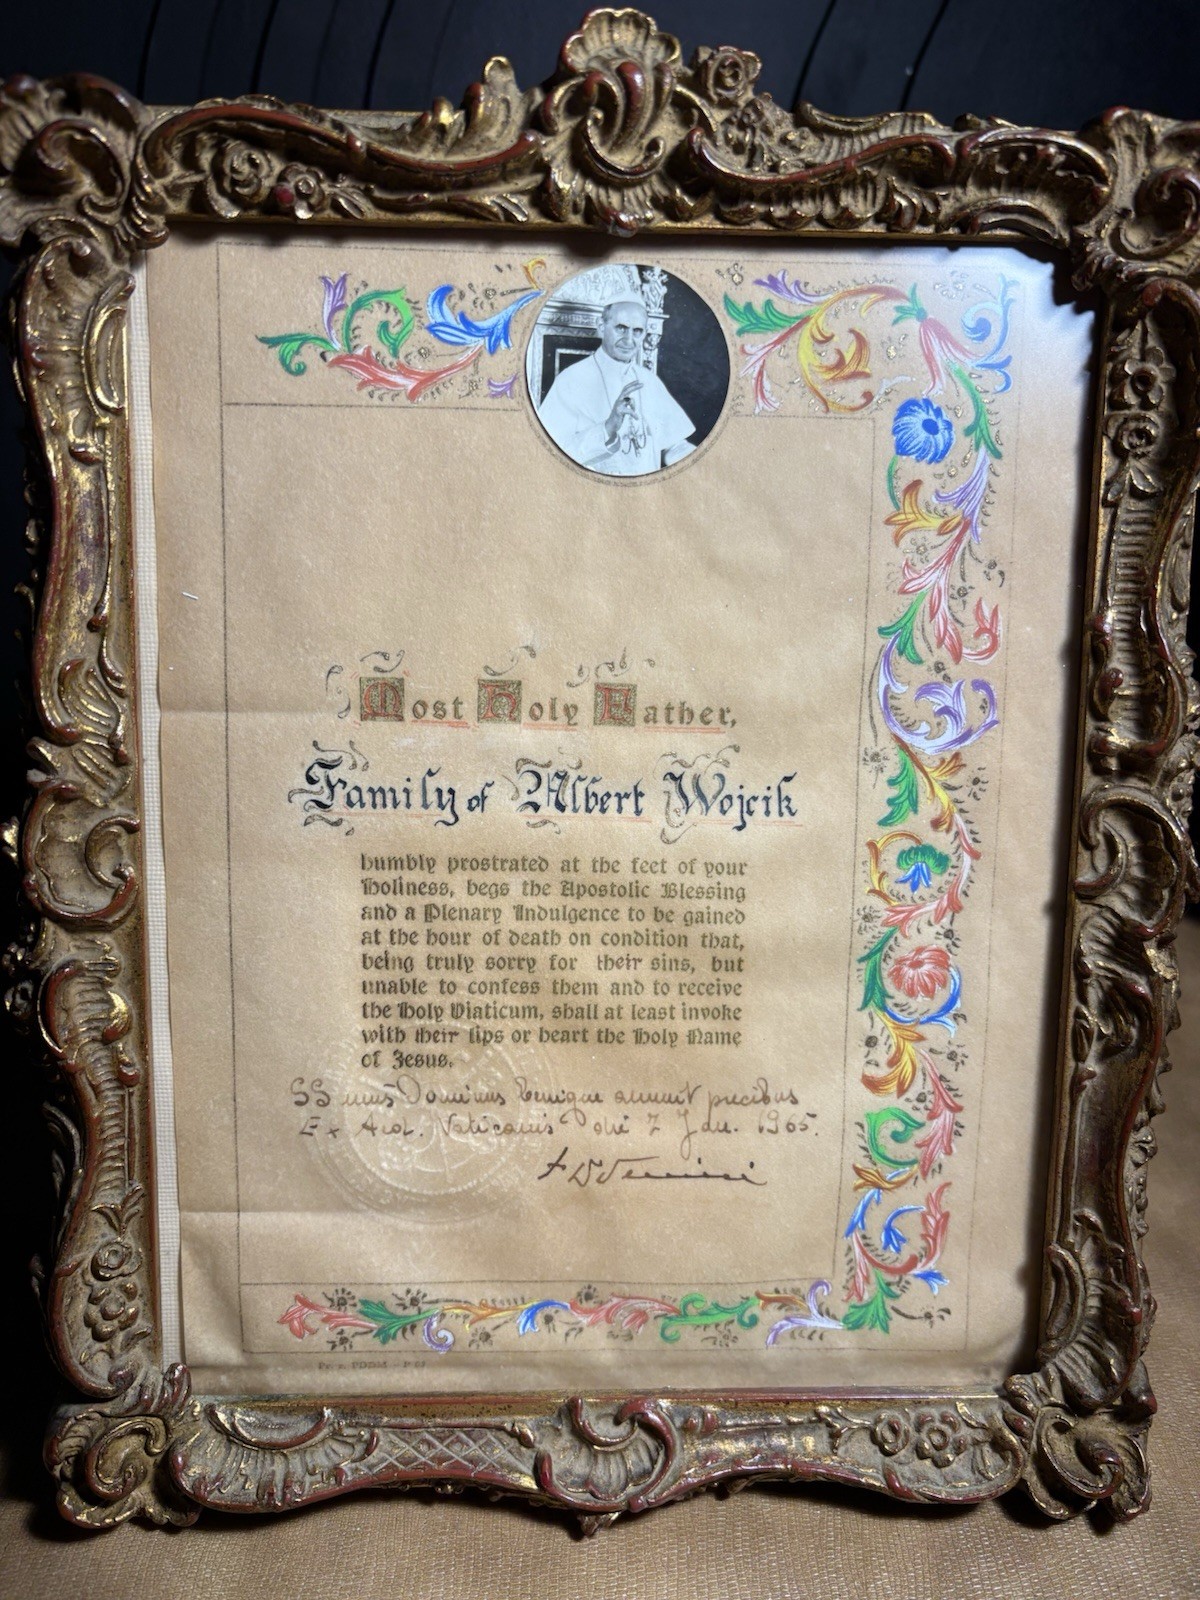 Most Holy Father,
Family of Albert Wojcik
humbly prostrated at the feet of your
Holiness, begs the Apostolic Blessing
and a Plenary Indulgence to be gained
at the hour of death on condition that,
being truly sorry for their sins, but
unable to confess them and to receive
the Holy Viaticum, shall at least invoke
with their lips or heart the Holy Name
of Jesus.
SSmus Dominus benigne annuit precibus
Ex Aed. Vaticanis die 7 Jan. 1965.